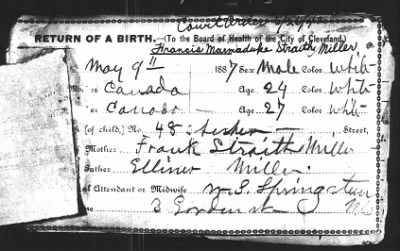 Court Order
RETURN OF A BIRTH. (To the Board of Health of the City of Cleveland.)
Francis Marmaduke Straith Miller,
May 9" 1887 Sex Male Color White
Canada Age 24 Color White
Canada Age 27 Color White
(of child,) No. 48 Street,
Mother Frank Straith Miller
Father Elliner Miller.
of Attendant or Midwife W. S. Springsteen
3